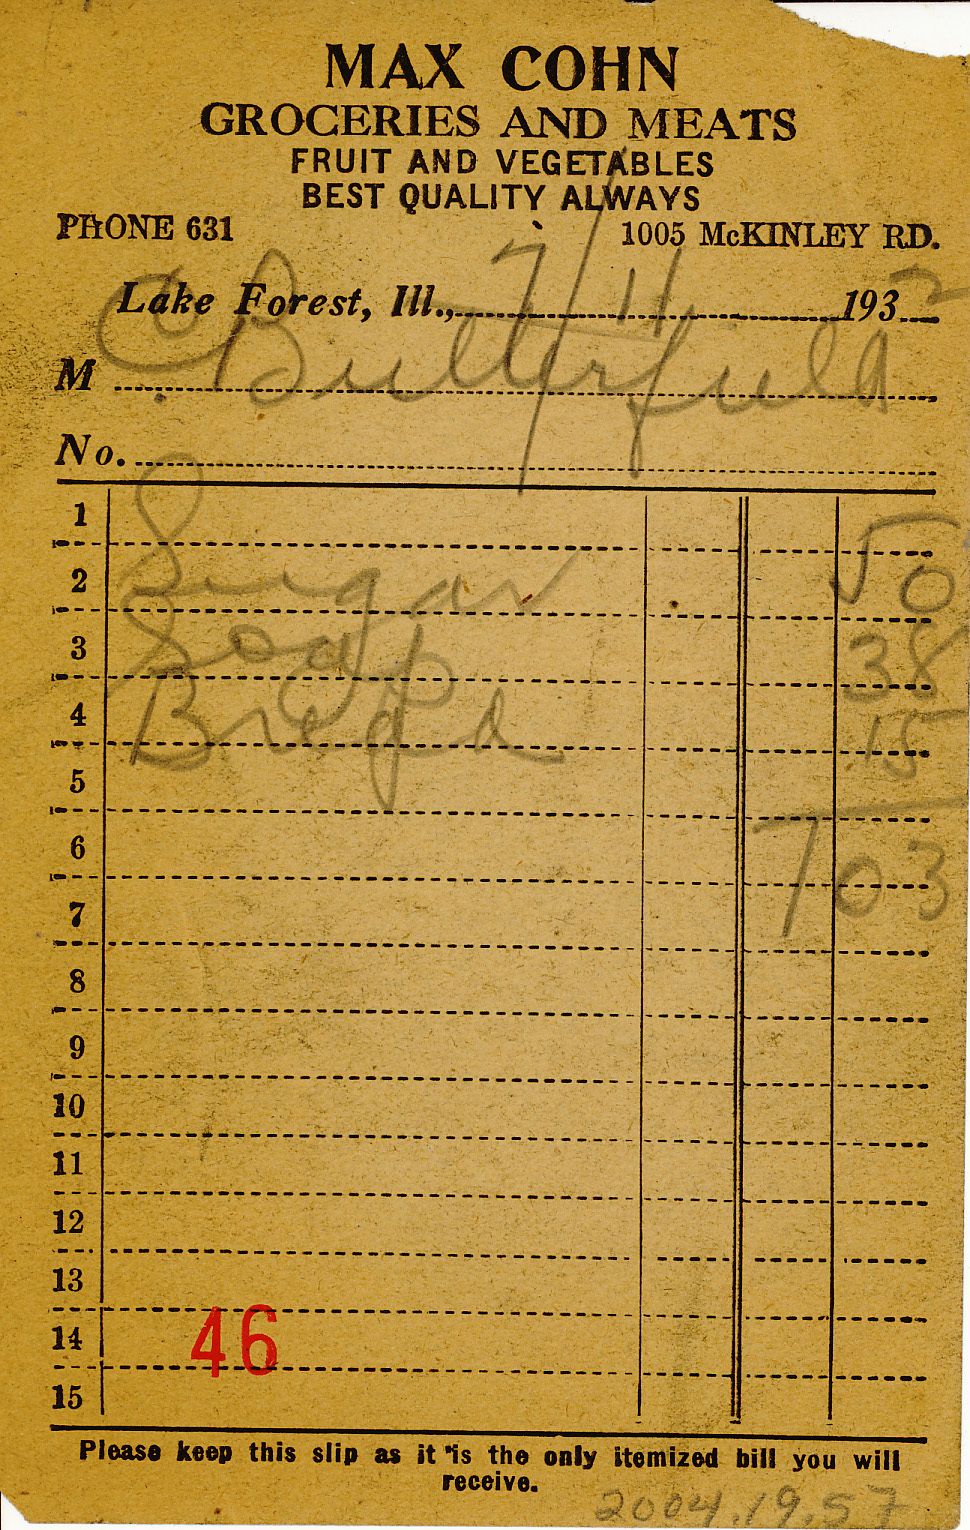 MAX COHN
GROCERIES AND MEATS
FRUIT AND VEGETABLES
BEST QUALITY ALWAYS
PHONE 631 1005 McKINLEY RD.
Lake Forest, Ill., 7/11 1932
M C Butterfield
No.
1
2 Sugar 50
3 Soap 38
4 Bread 15
5
6 103
7
8
9
10
11
12
13
14 46
15
Please keep this slip as it is the only itemized bill you will
receive.
2004.19.57